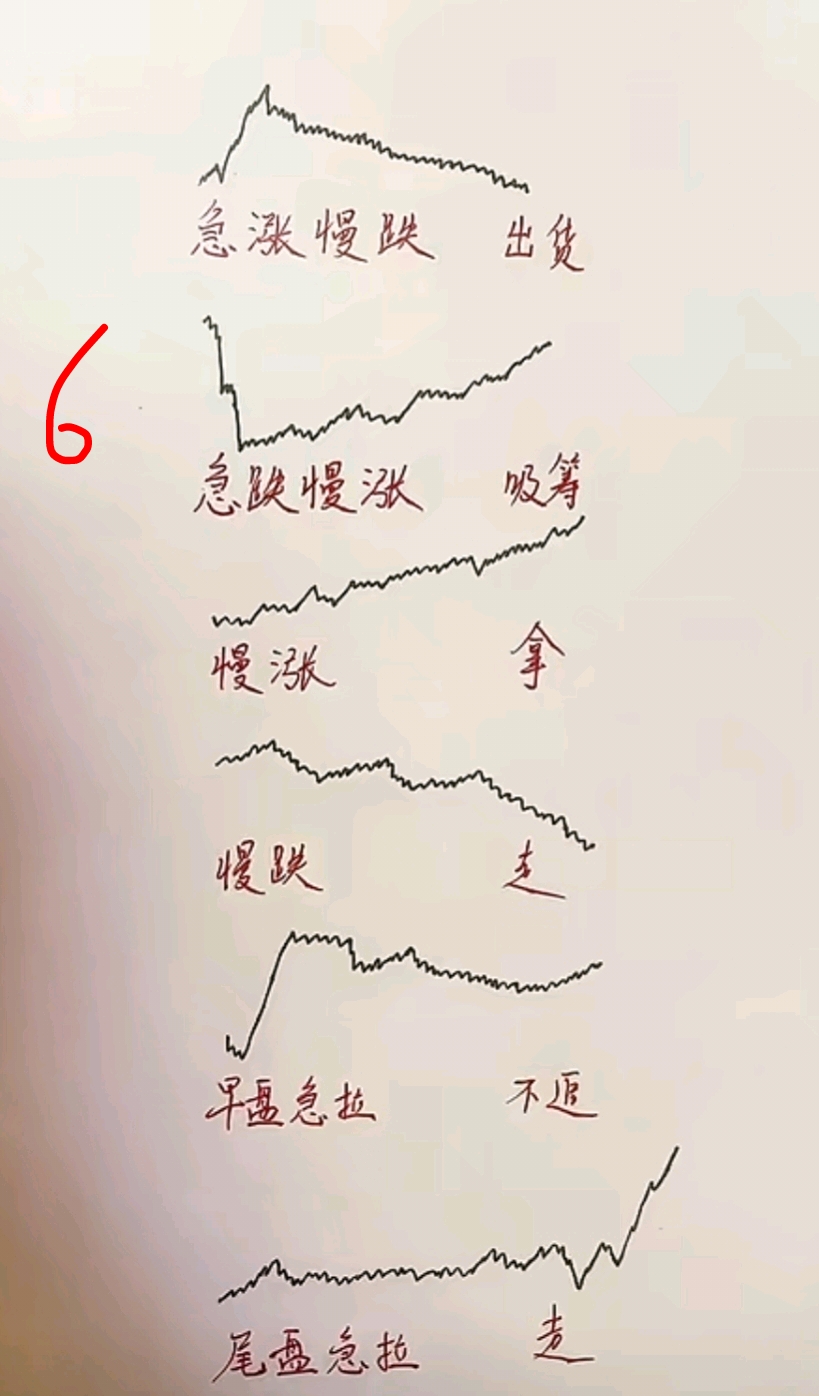 急涨慢跌 出货
6
急跌慢涨 吸筹
慢涨 拿
慢跌 走
早盘急拉 不追
尾盘急拉 走